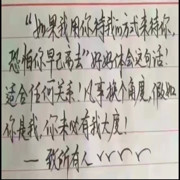 “如果我用你待我的方式来待你、
恐怕你早已离去”好好体会这句话!
适合任何关系!凡事换个角度,假如
你是我,你未必有我大度!
——致所有人